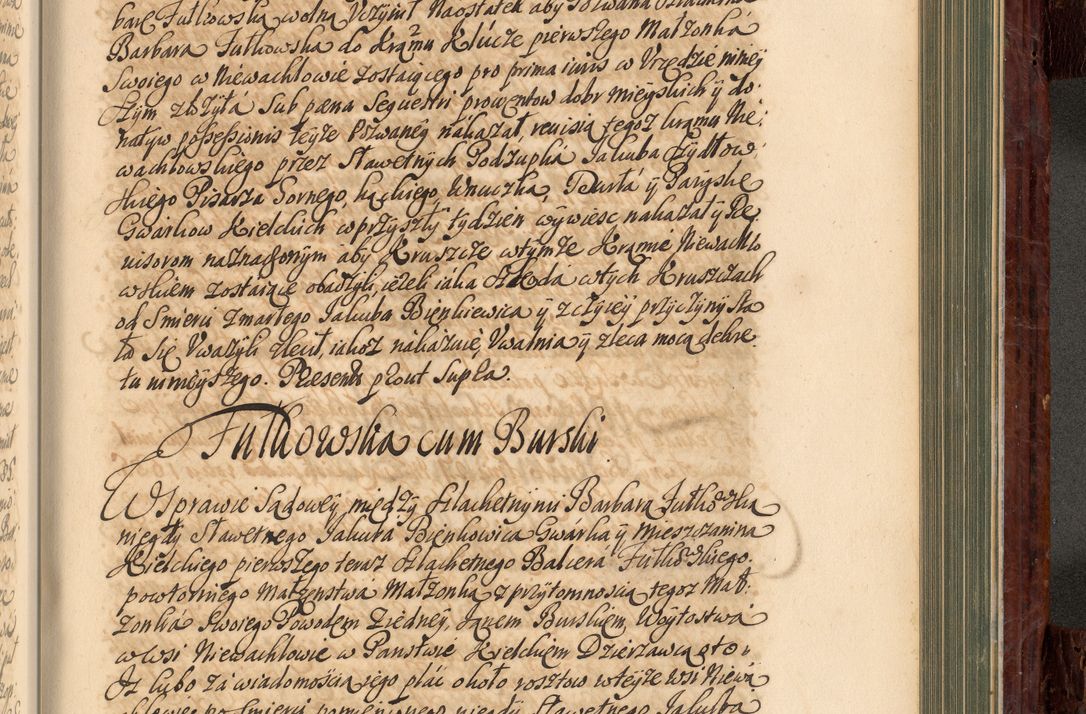 barę Fulkowską wolną Uczynił Naostatek aby Pozwana Szlachetna
Barbara Fulkowska do Kramu Klucze pierwszego Małżonka
Swoiego w Niewachlowie zostaiącego pro prima iuris w Urzędzie niniey
szym złożyła Sub pœna Sequestri prowentow dobr mieyskich ÿ do:
natyw possessionis teyże Pozwaney nakazał, rewisią tegoż kramu Nie:
wachlowskiego przez Sławetnych Podżupka Jakuba Żydłow
skiego Pisarza Gornego, Wnuczka, ÿ
Gwarkow Kielckich w przyszły tydzien wywiesc nakazał ÿ Re
uisorom naznaczonym aby Kruszcze w tymże Kramie Niewachlo
wskiem zostaiące obaczyli, ieżeli iaka szkoda w tych Kruszczach
od Smierci Zmarłego Jakuba Bienkiewica ÿ z czyiey przyczyny sta
ła się Uważyli zlecił, iakoż nakazuie, Uwalnia ÿ zleca mocą dekre
tu ninieyszego. Præsentis prout Supra.
Fulkowska cum Burski
W Sprawie Sądowey między Szlachetnymi Barbarą Fulkowską
niegdy Sławetnego Jakuba Bienkowica Gwarka ÿ Mieszczanina
Kielckiego pierwszego teraz Szlachetnego Balcera Fulkowskiego
powtornego Małżenstwa Małżonką z przytomnoscią tegoż Mał:
żonka Swoiego Powodem z iedney, Janem Burskiem Woytostwa
w Wsi Niewachlowie w Panstwie Kielckiem Dzierzawcą o to
Iż lubo za wiadomoscią iego płac około rosztow w teyże wsi Niewa
chlowie po Smierci pomienionego niegdy Sławetnego Jakuba